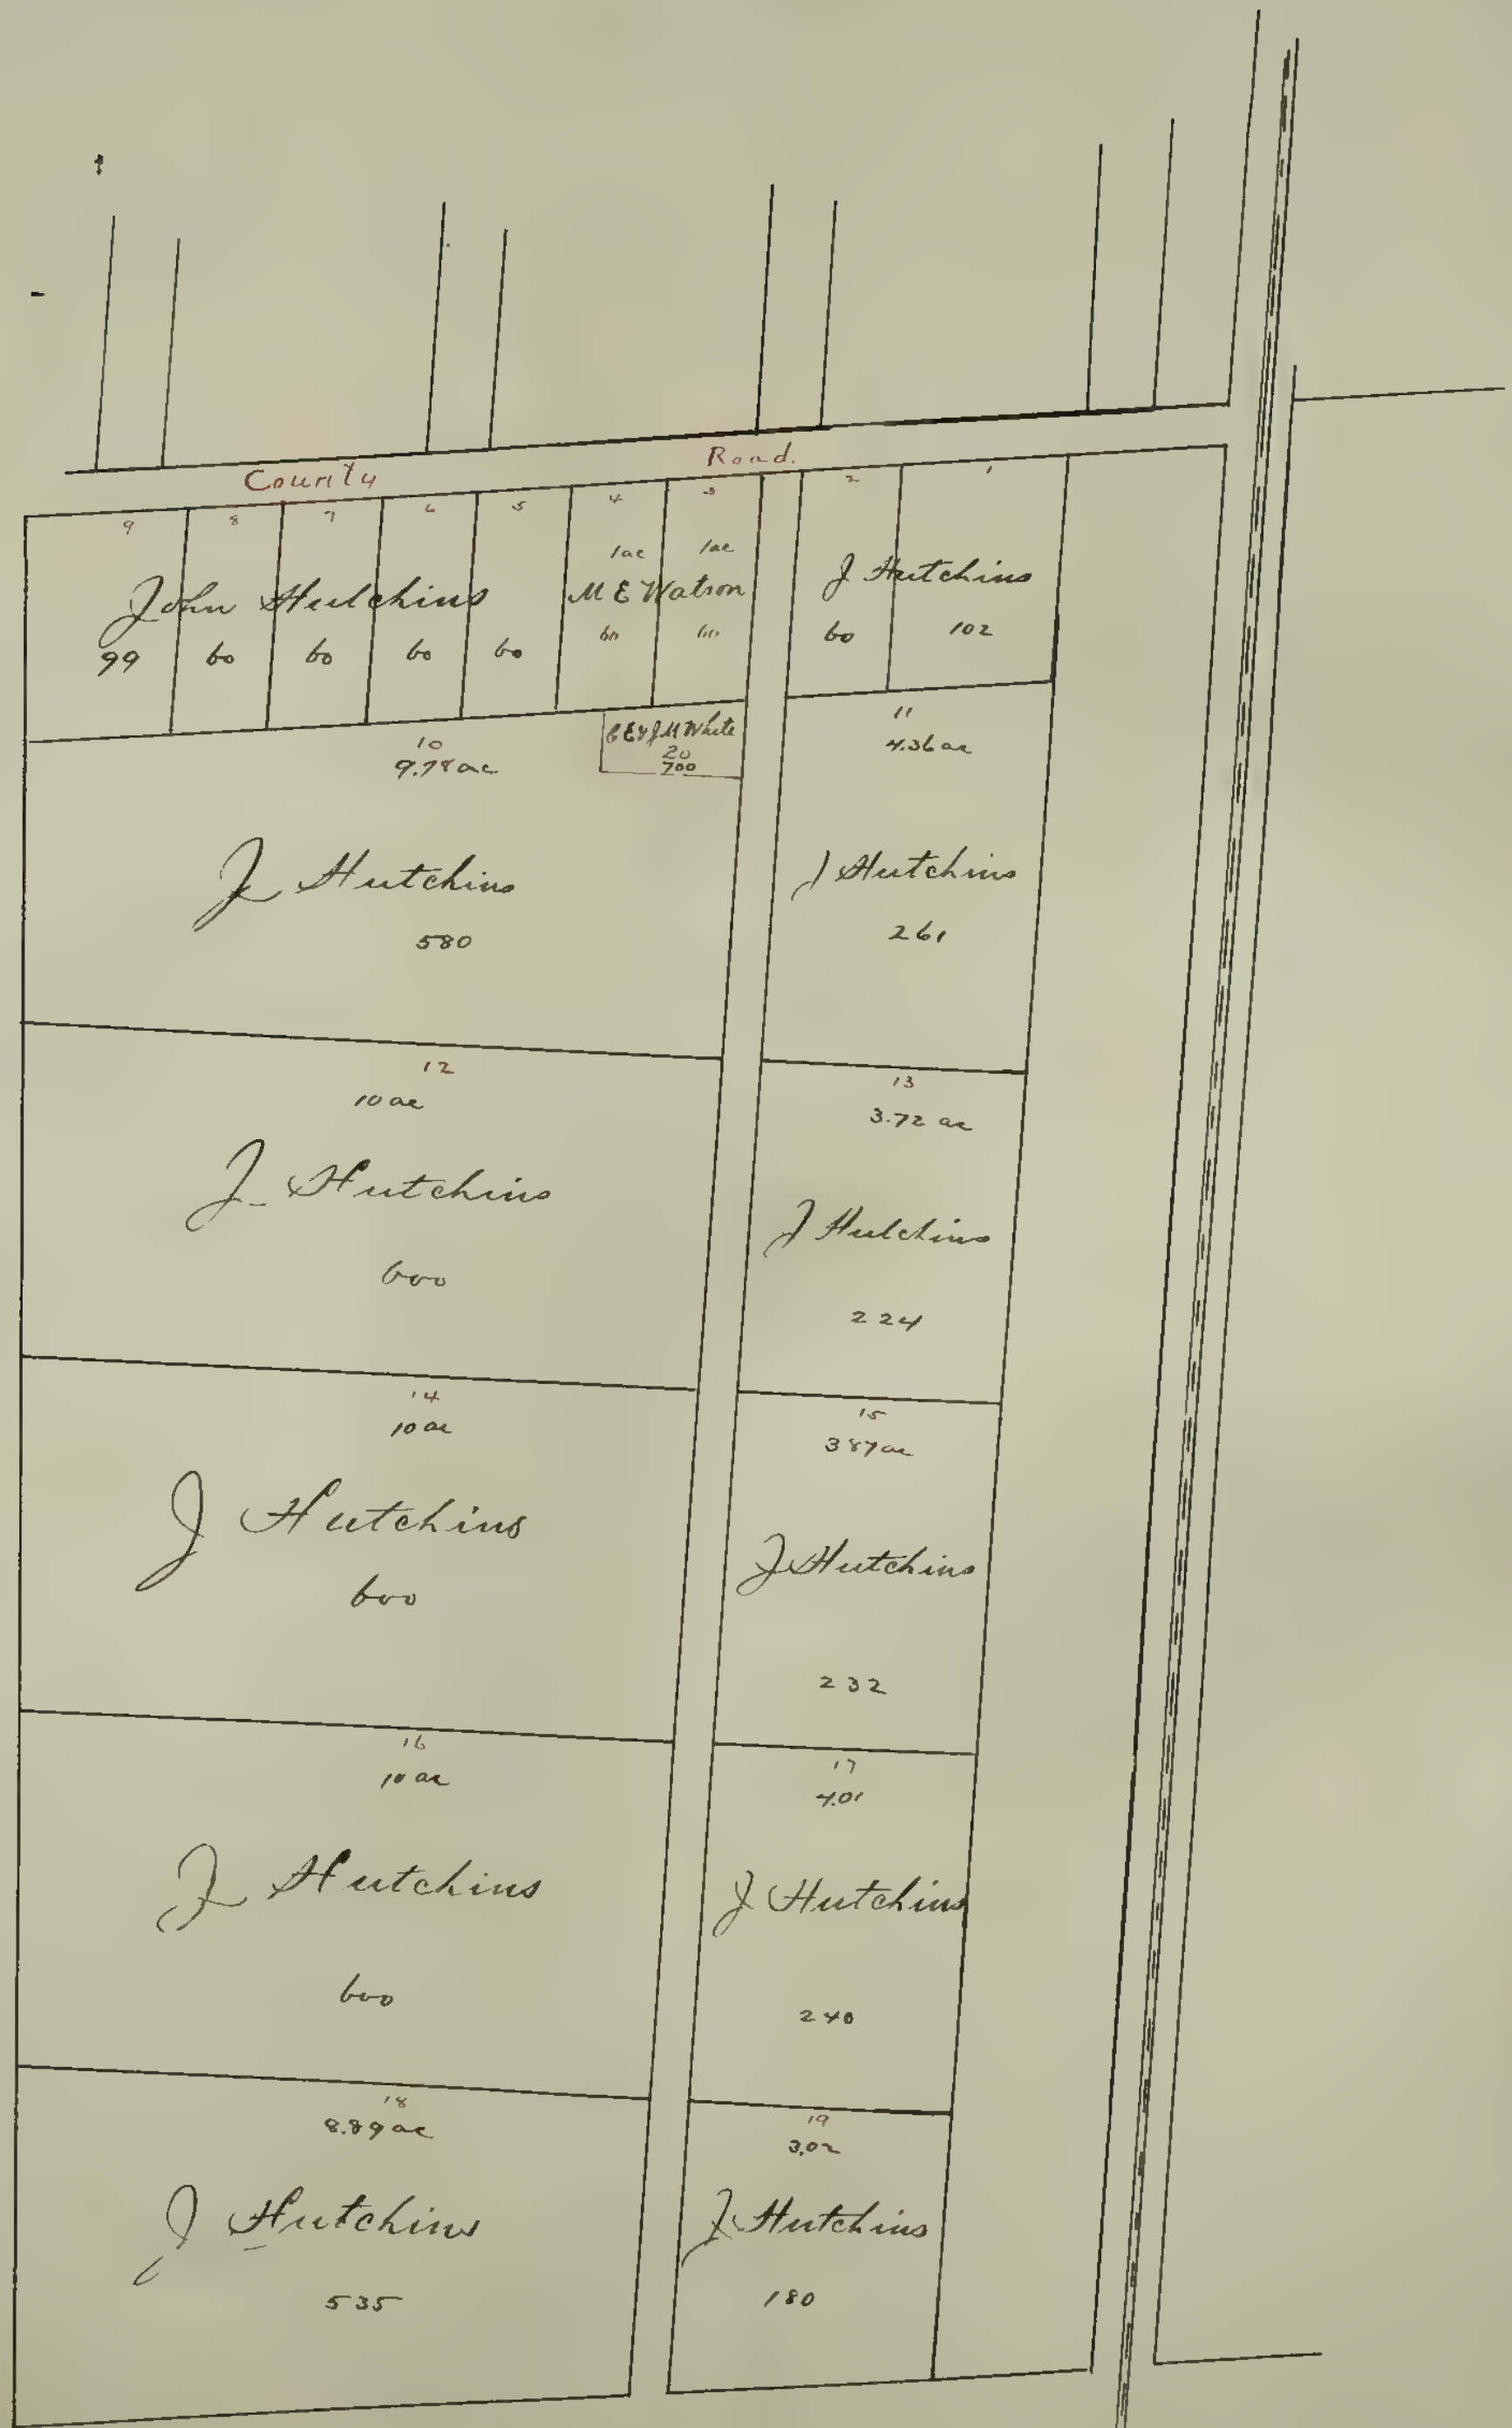 County Road.
9 8 7 6 5 4 3 2 1
1ac 1ac
John Hutchins M E Watson J Hutchins
99 60 60 60 60 60 60 60 102
10
9.78 ac
C E & J M White
20
700
J Hutchins
580
11
4.36 ac
J Hutchins
261
12
10 ac
J Hutchins
600
13
3.72 ac
J Hutchins
224
14
10 ac
J Hutchins
600
15
3 87 ac
J Hutchins
232
16
10 ac
J Hutchins
600
17
4.01
J Hutchins
240
18
8.89 ac
J Hutchins
535
19
3.02
J Hutchins
180